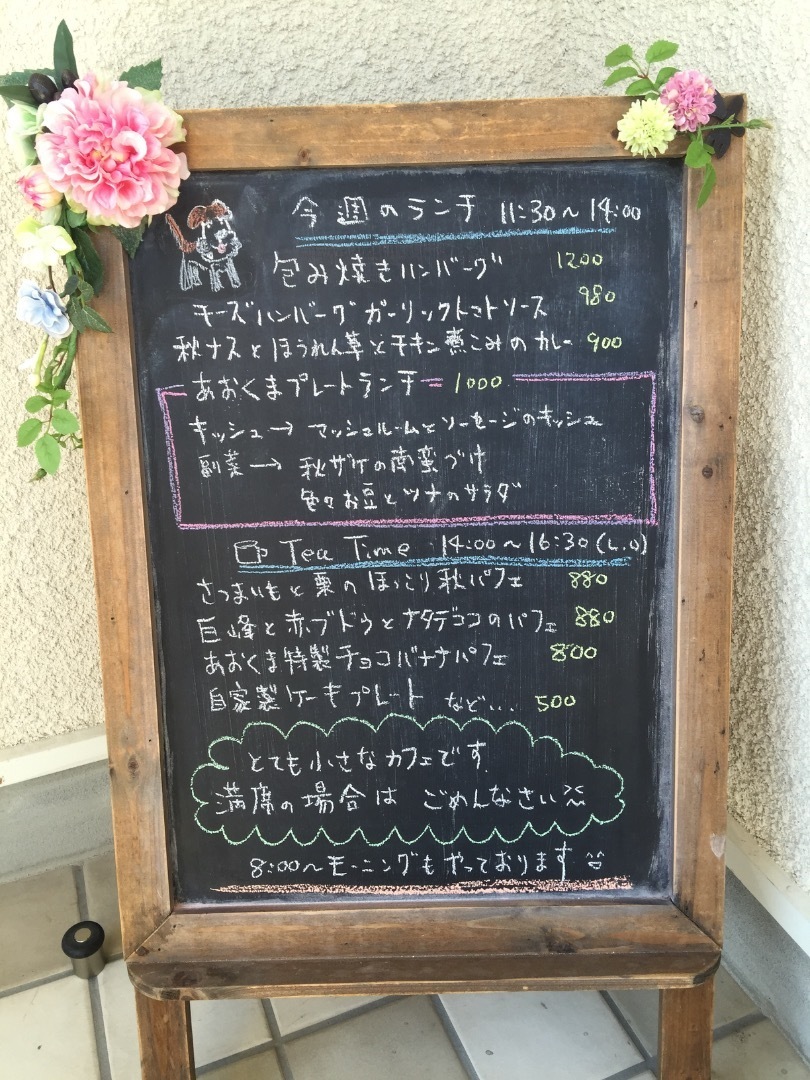 今週のランチ 11:30〜14:00
包み焼きハンバーグ 1200
チーズハンバーグガーリックトマトソース 980
秋ナスとほうれん草とチキン煮こみのカレー 900
あおくまプレートランチ 1000
キッシュ→ マッシュルームとソーセージのキッシュ
副菜→ 秋ザケの南蛮づけ
色々お豆とツナのサラダ
Tea Time 14:00〜16:30(L.O)
さつまいもと栗のほっこり秋パフェ 880
巨峰と赤ブドウとナタデココのパフェ 880
あおくま特製チョコバナナパフェ 800
自家製ケーキプレート など... 500
とても小さなカフェです
満席の場合は ごめんなさい
8:00〜モーニングもやっております